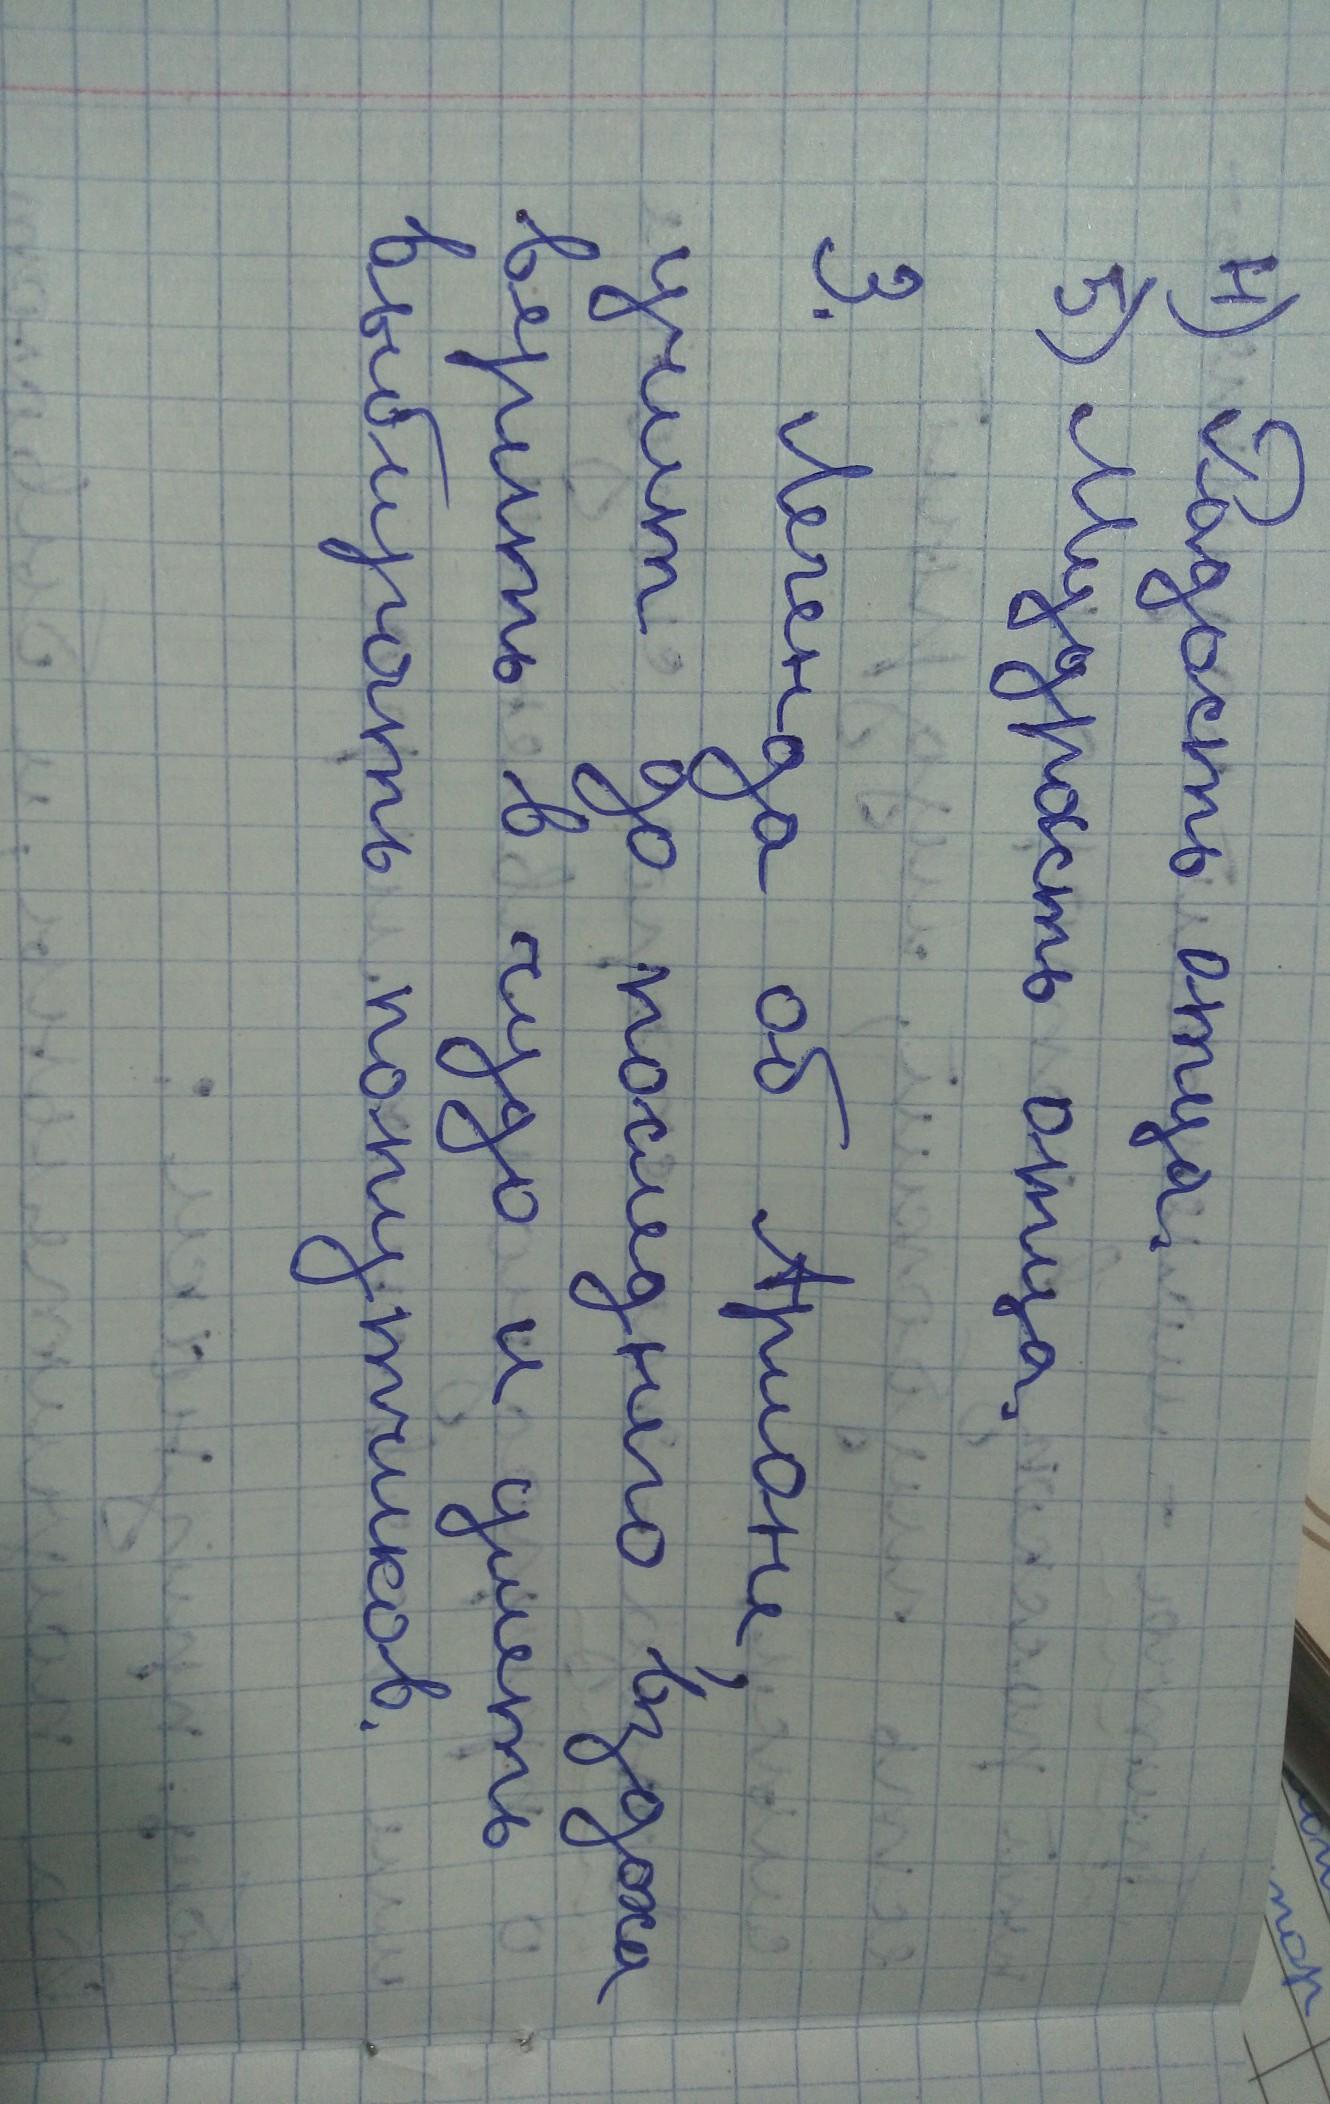 4) Радость отца.
5) Мудрость отца.
3. Легенда об Арионе,
учит до последнего вздоха
верить в чудо и уметь
выбирать попутчиков.